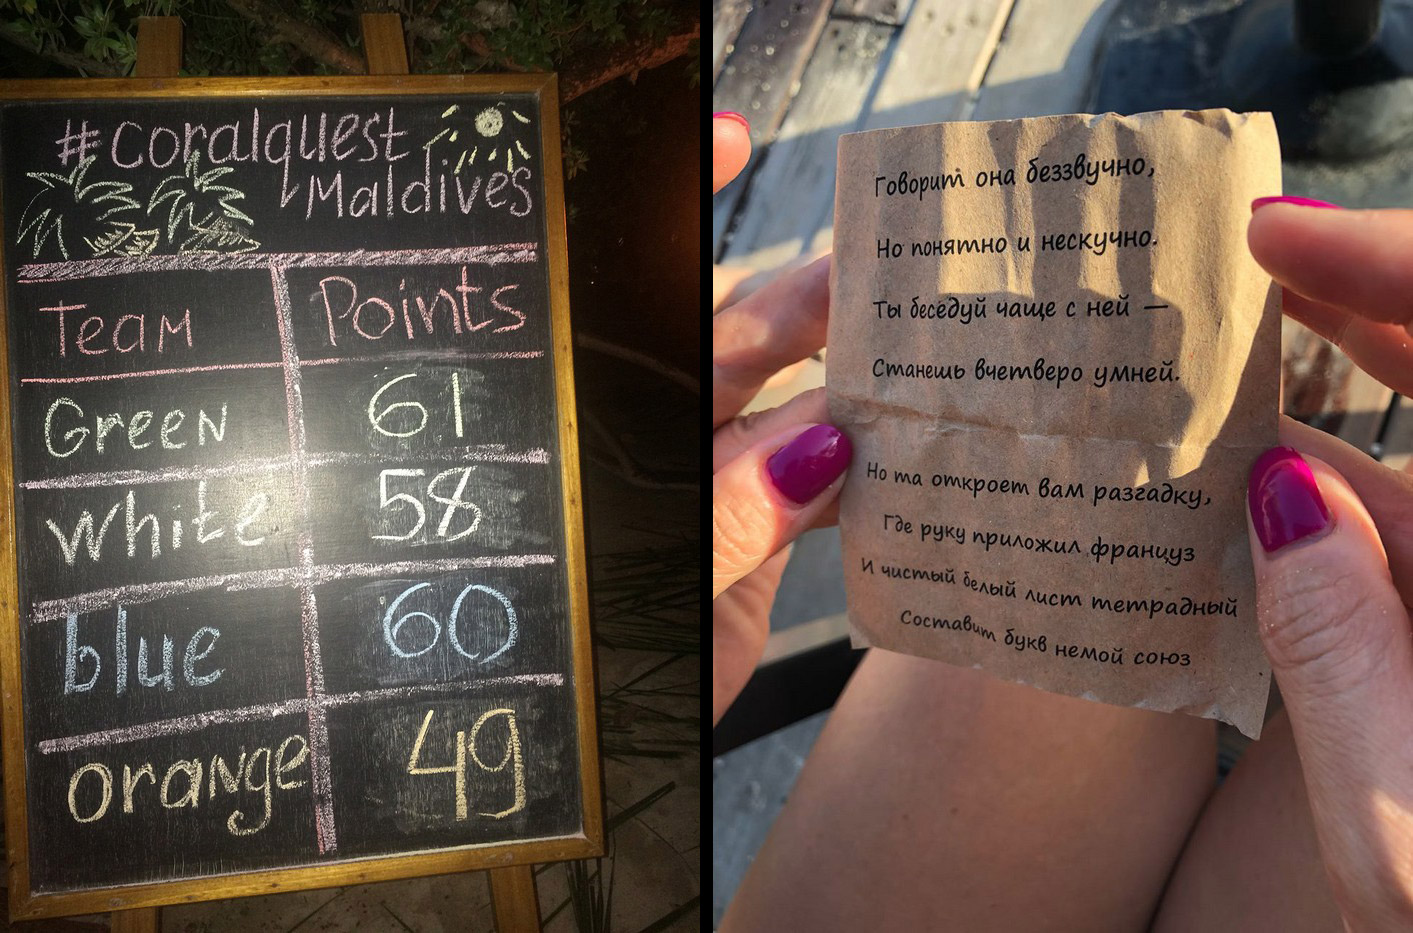 #coralquest
Maldives
Team Points
Green 61
white 58
blue 60
orange 49
Говорит она беззвучно,
Но понятно и нескучно.
Ты беседуй чаще с ней —
Станешь вчетверо умней.
Но та откроет вам разгадку,
Где руку приложил француз
И чистый белый лист тетрадный
Составит букв немой союз